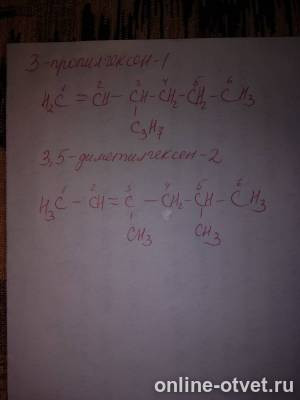 3-пропилгексен-1
1 2 3 4 5 6
H₂C = CH - CH - CH₂ - CH₂ - CH₃
C₃H₇
3,5-диметилгексен-2
1 2 3 4 5 6
H₃C - CH = C - CH₂ - CH - CH₃
CH₃ CH₃
online-otvet.ru